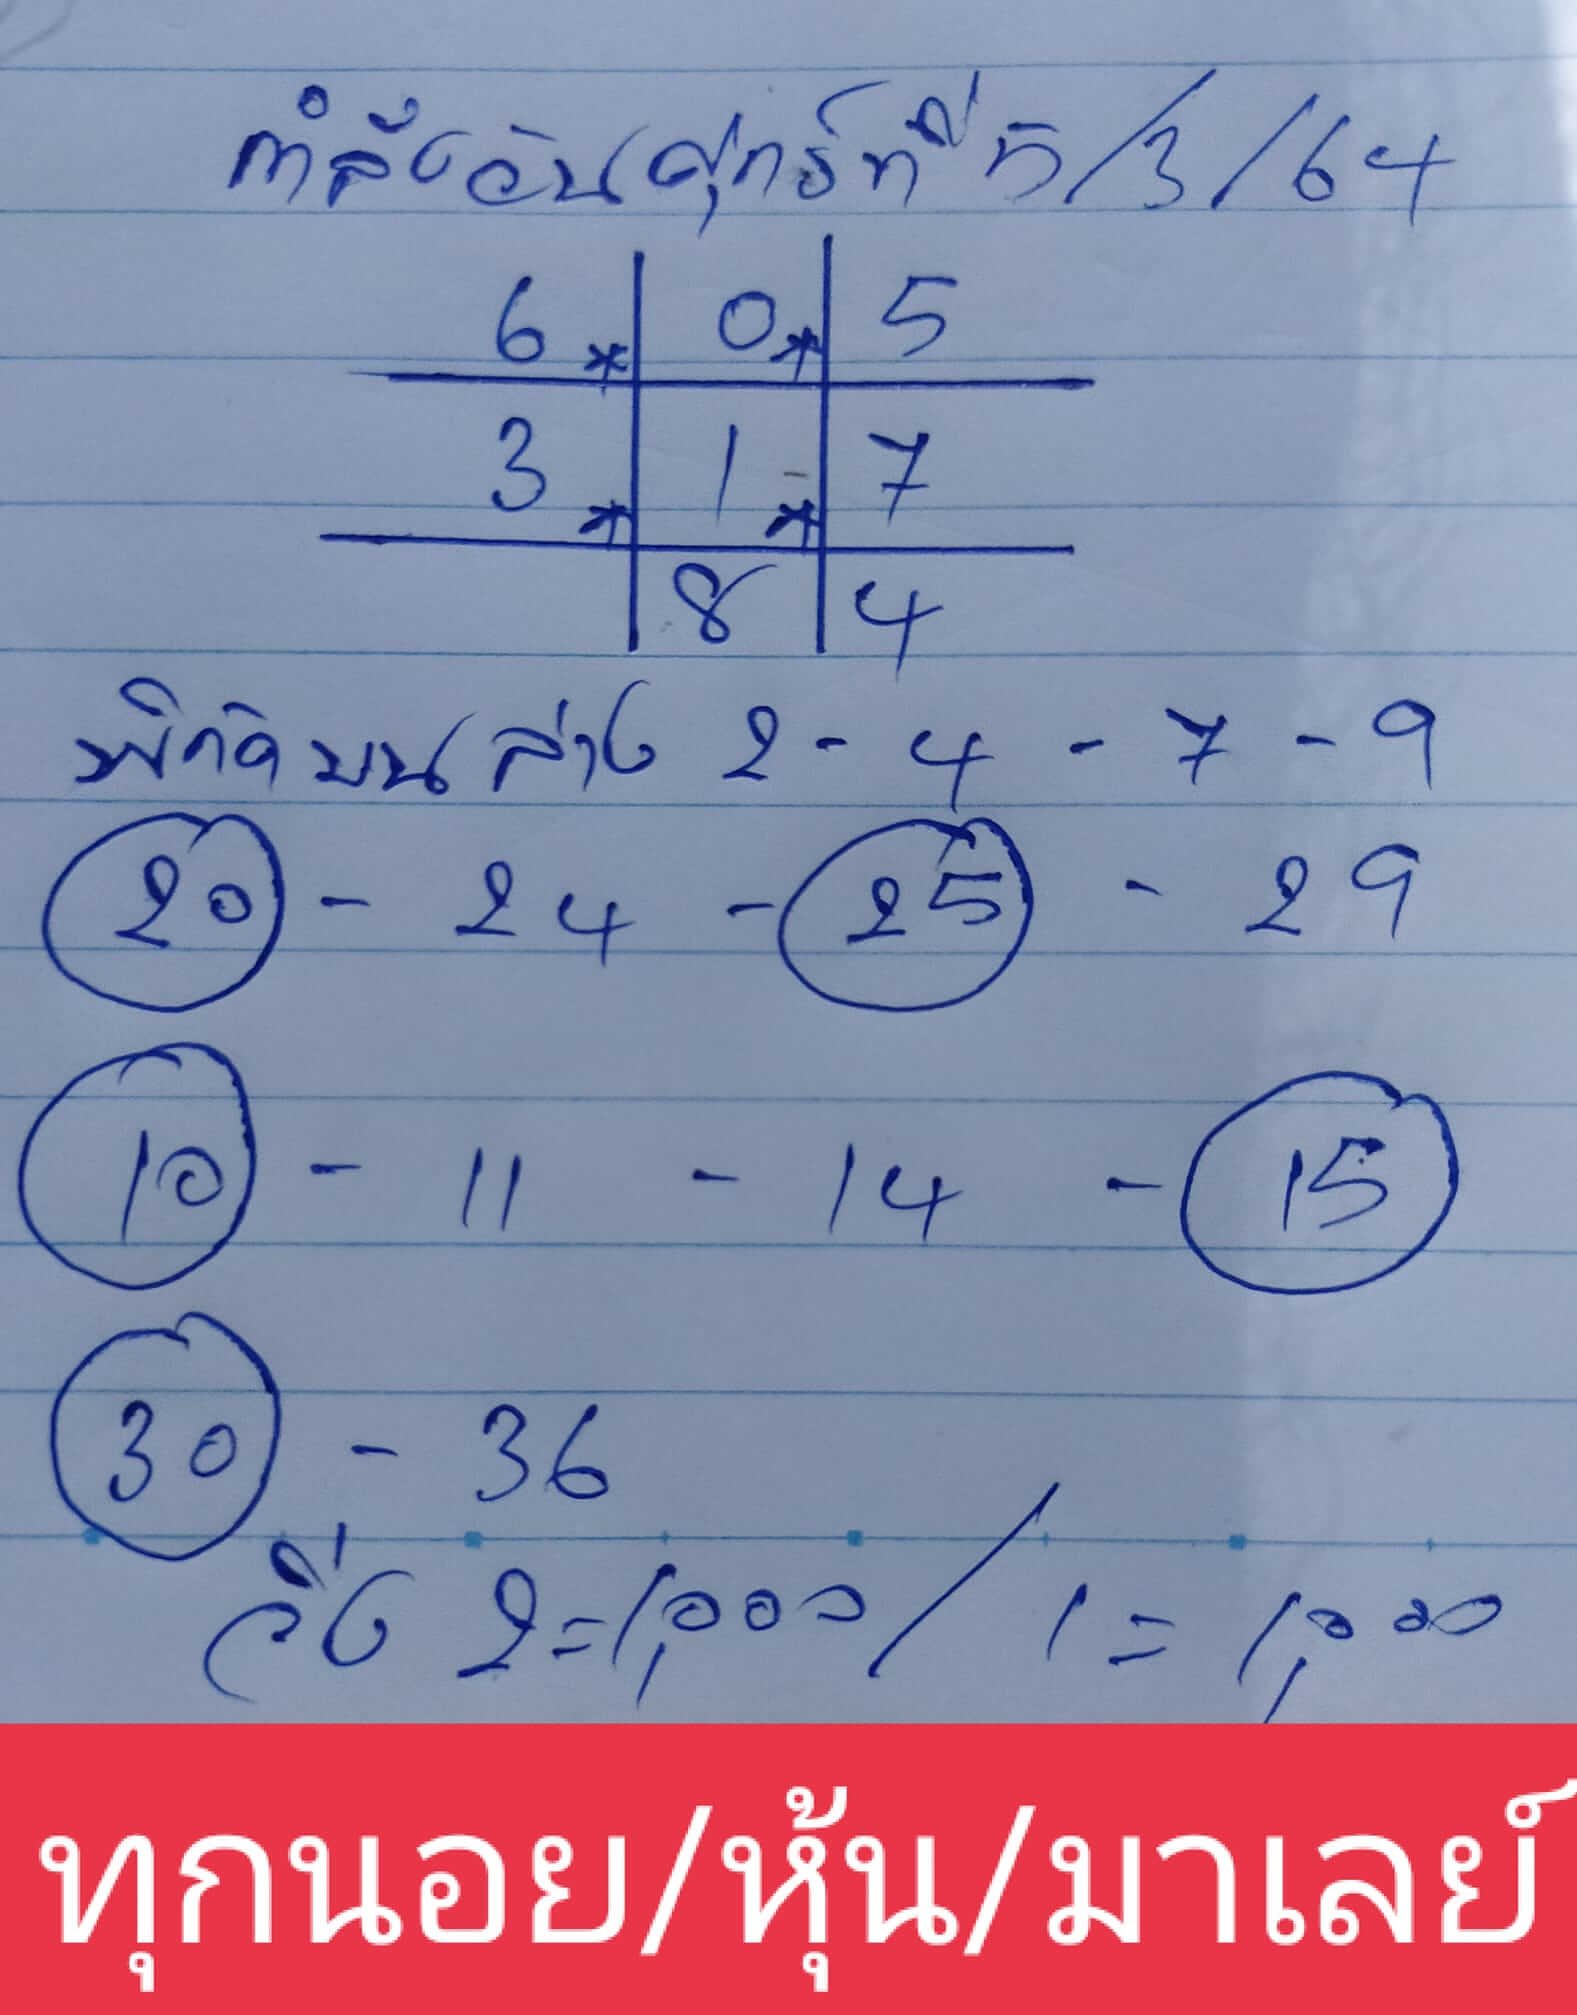 กำลังวันศุกร์ที่ 5/3/64
6 * 0 * 5
3 * 1 * 7
8 4
พิกัดบนล่าง 2 - 4 - 7 - 9
20 - 24 - 25 - 29
10 - 11 - 14 - 15
30 - 36
วิ่ง 2=1,000 / 1 = 1,000
ทุกนอย/หุ้น/มาเลย์